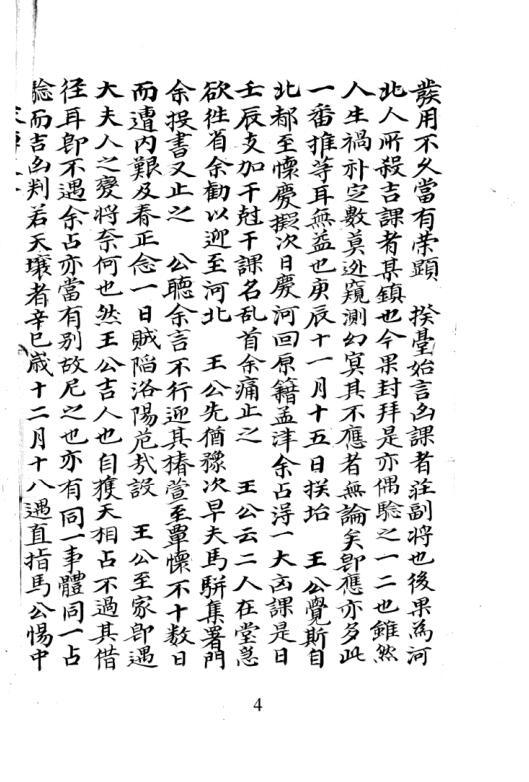 發用不久當有荣顕　揆臺始言凶課者莊副將也後果為河
北人所殺吉課者某鎮也今果封拜是亦偶驗之一二也雖然
人生禍福定數莫逃窺測幻冥其不應者無論矣即應亦多此
一番推等耳無益也庚辰十一月十五日揆治　王公覺斯自
北都至懷慶擬次日慶河回原籍孟津余占淂一大凶課是日
壬辰支加干尅干課名乱首余痛止之　王公云二人在堂急
欲徃省余勸以迎至河北　王公先猶豫次早夫馬駢集署門
余投書又止之　公聽余言不行迎其椿萱至覃懷不十数日
而遭内艱及春正念一日賊陷洛陽危㦲設　王公至家即遇
大夫人之變將奈何也然王公吉人也自獲天相占不過其借
径耳即不遇余占亦當有别故尼之也亦有同一事體同一占
驗而吉凶判若天壤者辛巳嵗十二月十八遇直指馬公惕中
4